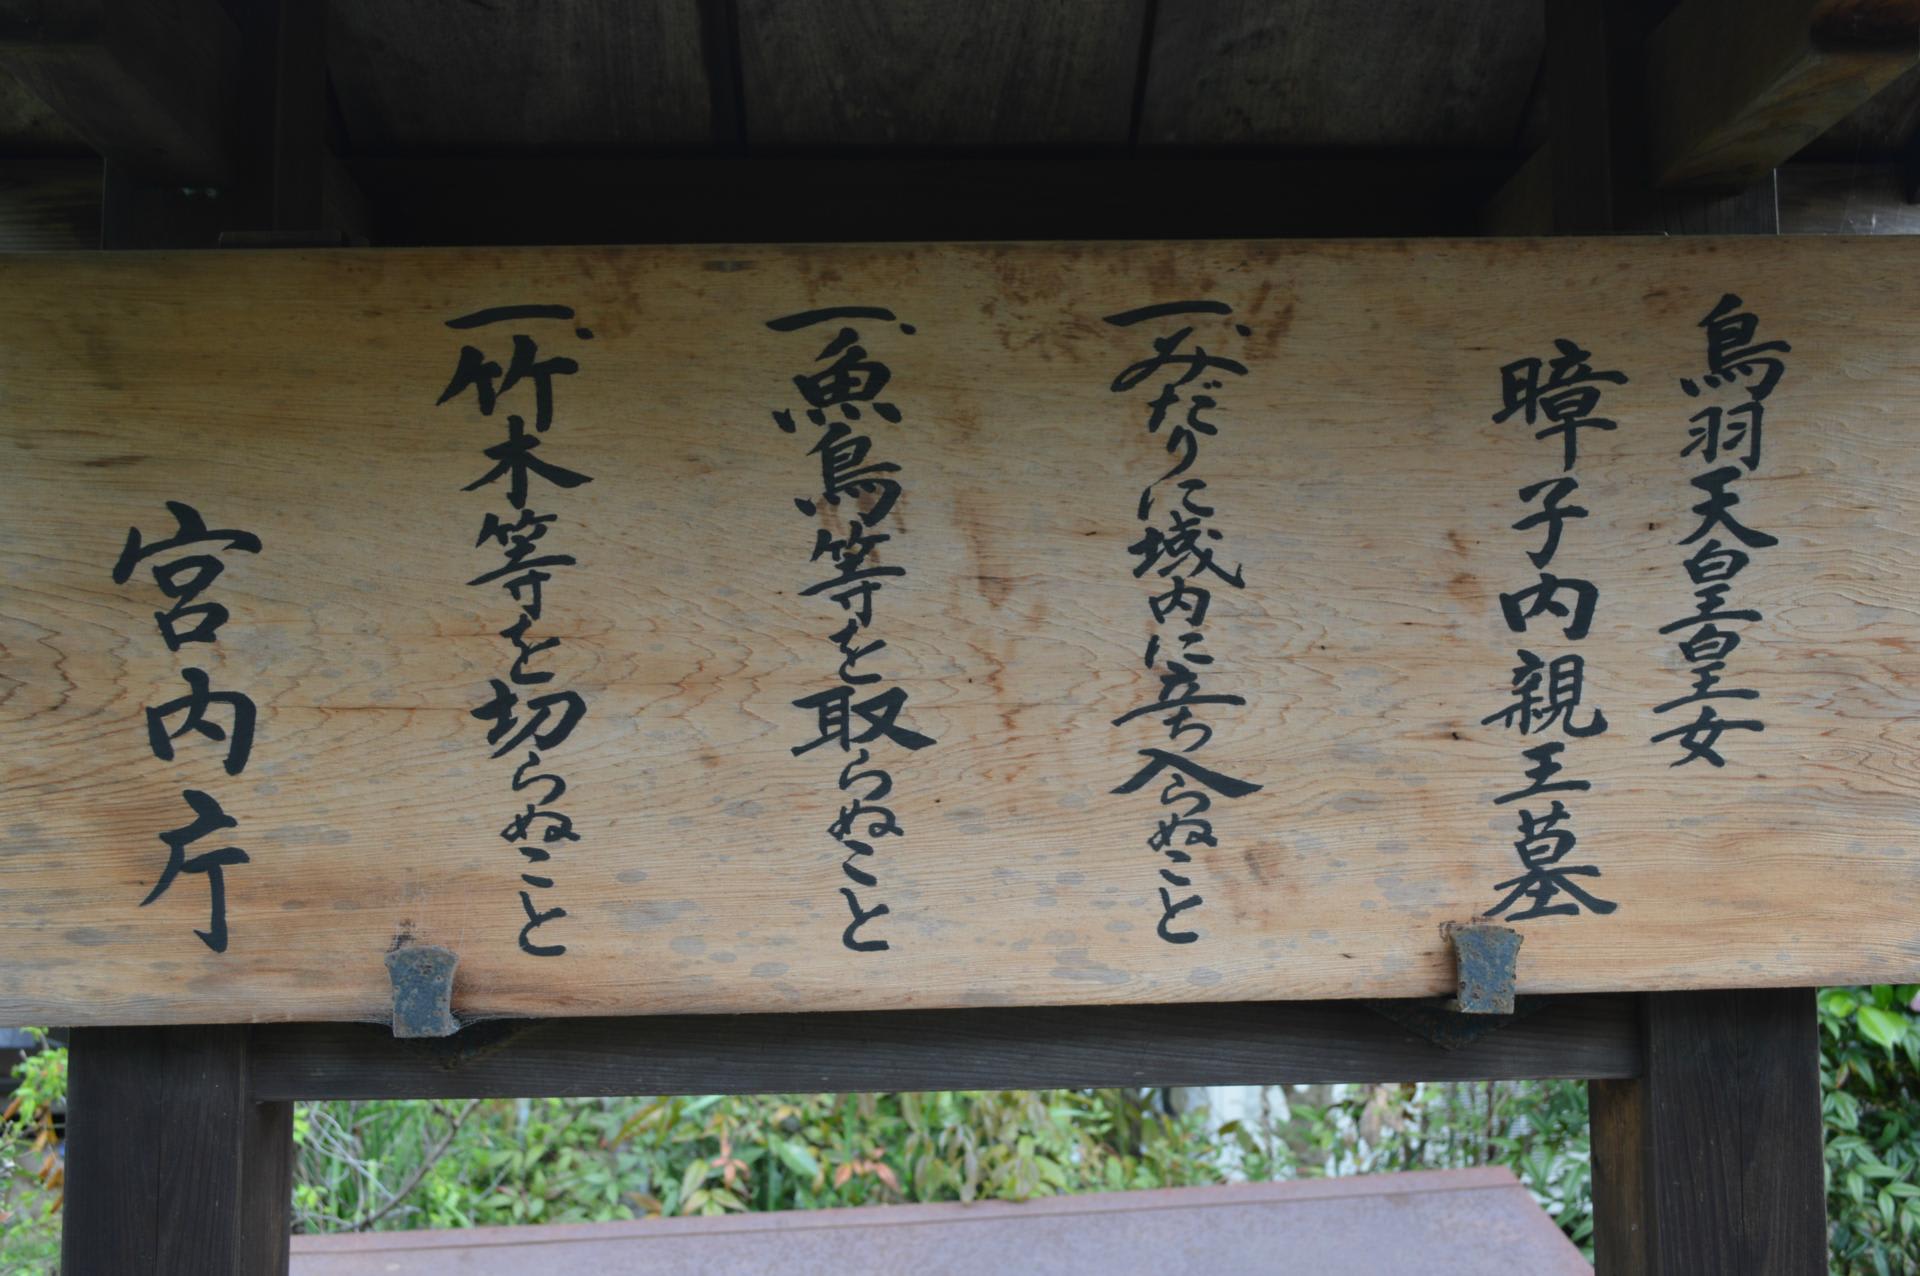 鳥羽天皇皇女
暲子内親王墓
一、みだりに域内に立ち入らぬこと
一、魚鳥等を取らぬこと
一、竹木等を切らぬこと
宮内庁